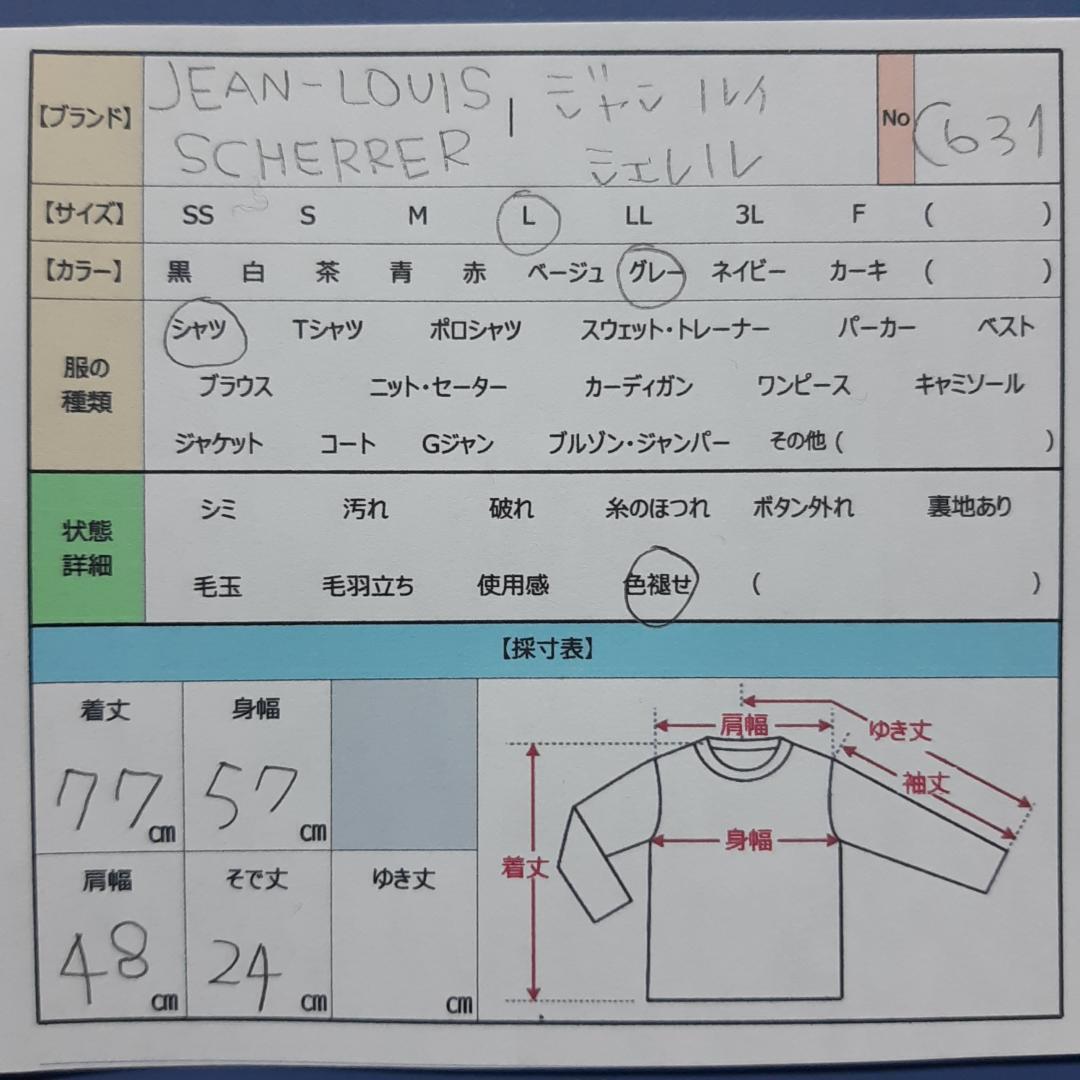 【ブランド】 JEAN-LOUIS SCHERRER , ジャン ルイ シェレル No C631
【サイズ】 SS S M L LL 3L F ( )
【カラー】 黒 白 茶 青 赤 ベージュ グレー ネイビー カーキ ( )
服の種類 シャツ Tシャツ ポロシャツ スウェット・トレーナー パーカー ベスト
ブラウス ニット・セーター カーディガン ワンピース キャミソール
ジャケット コート Gジャン ブルゾン・ジャンパー その他 ( )
状態詳細 シミ 汚れ 破れ 糸のほつれ ボタン外れ 裏地あり
毛玉 毛羽立ち 使用感 色褪せ ( )
【採寸表】
着丈 身幅
77cm 57cm
肩幅 そで丈 ゆき丈
48cm 24cm cm
肩幅 ゆき丈
袖丈
身幅
着丈